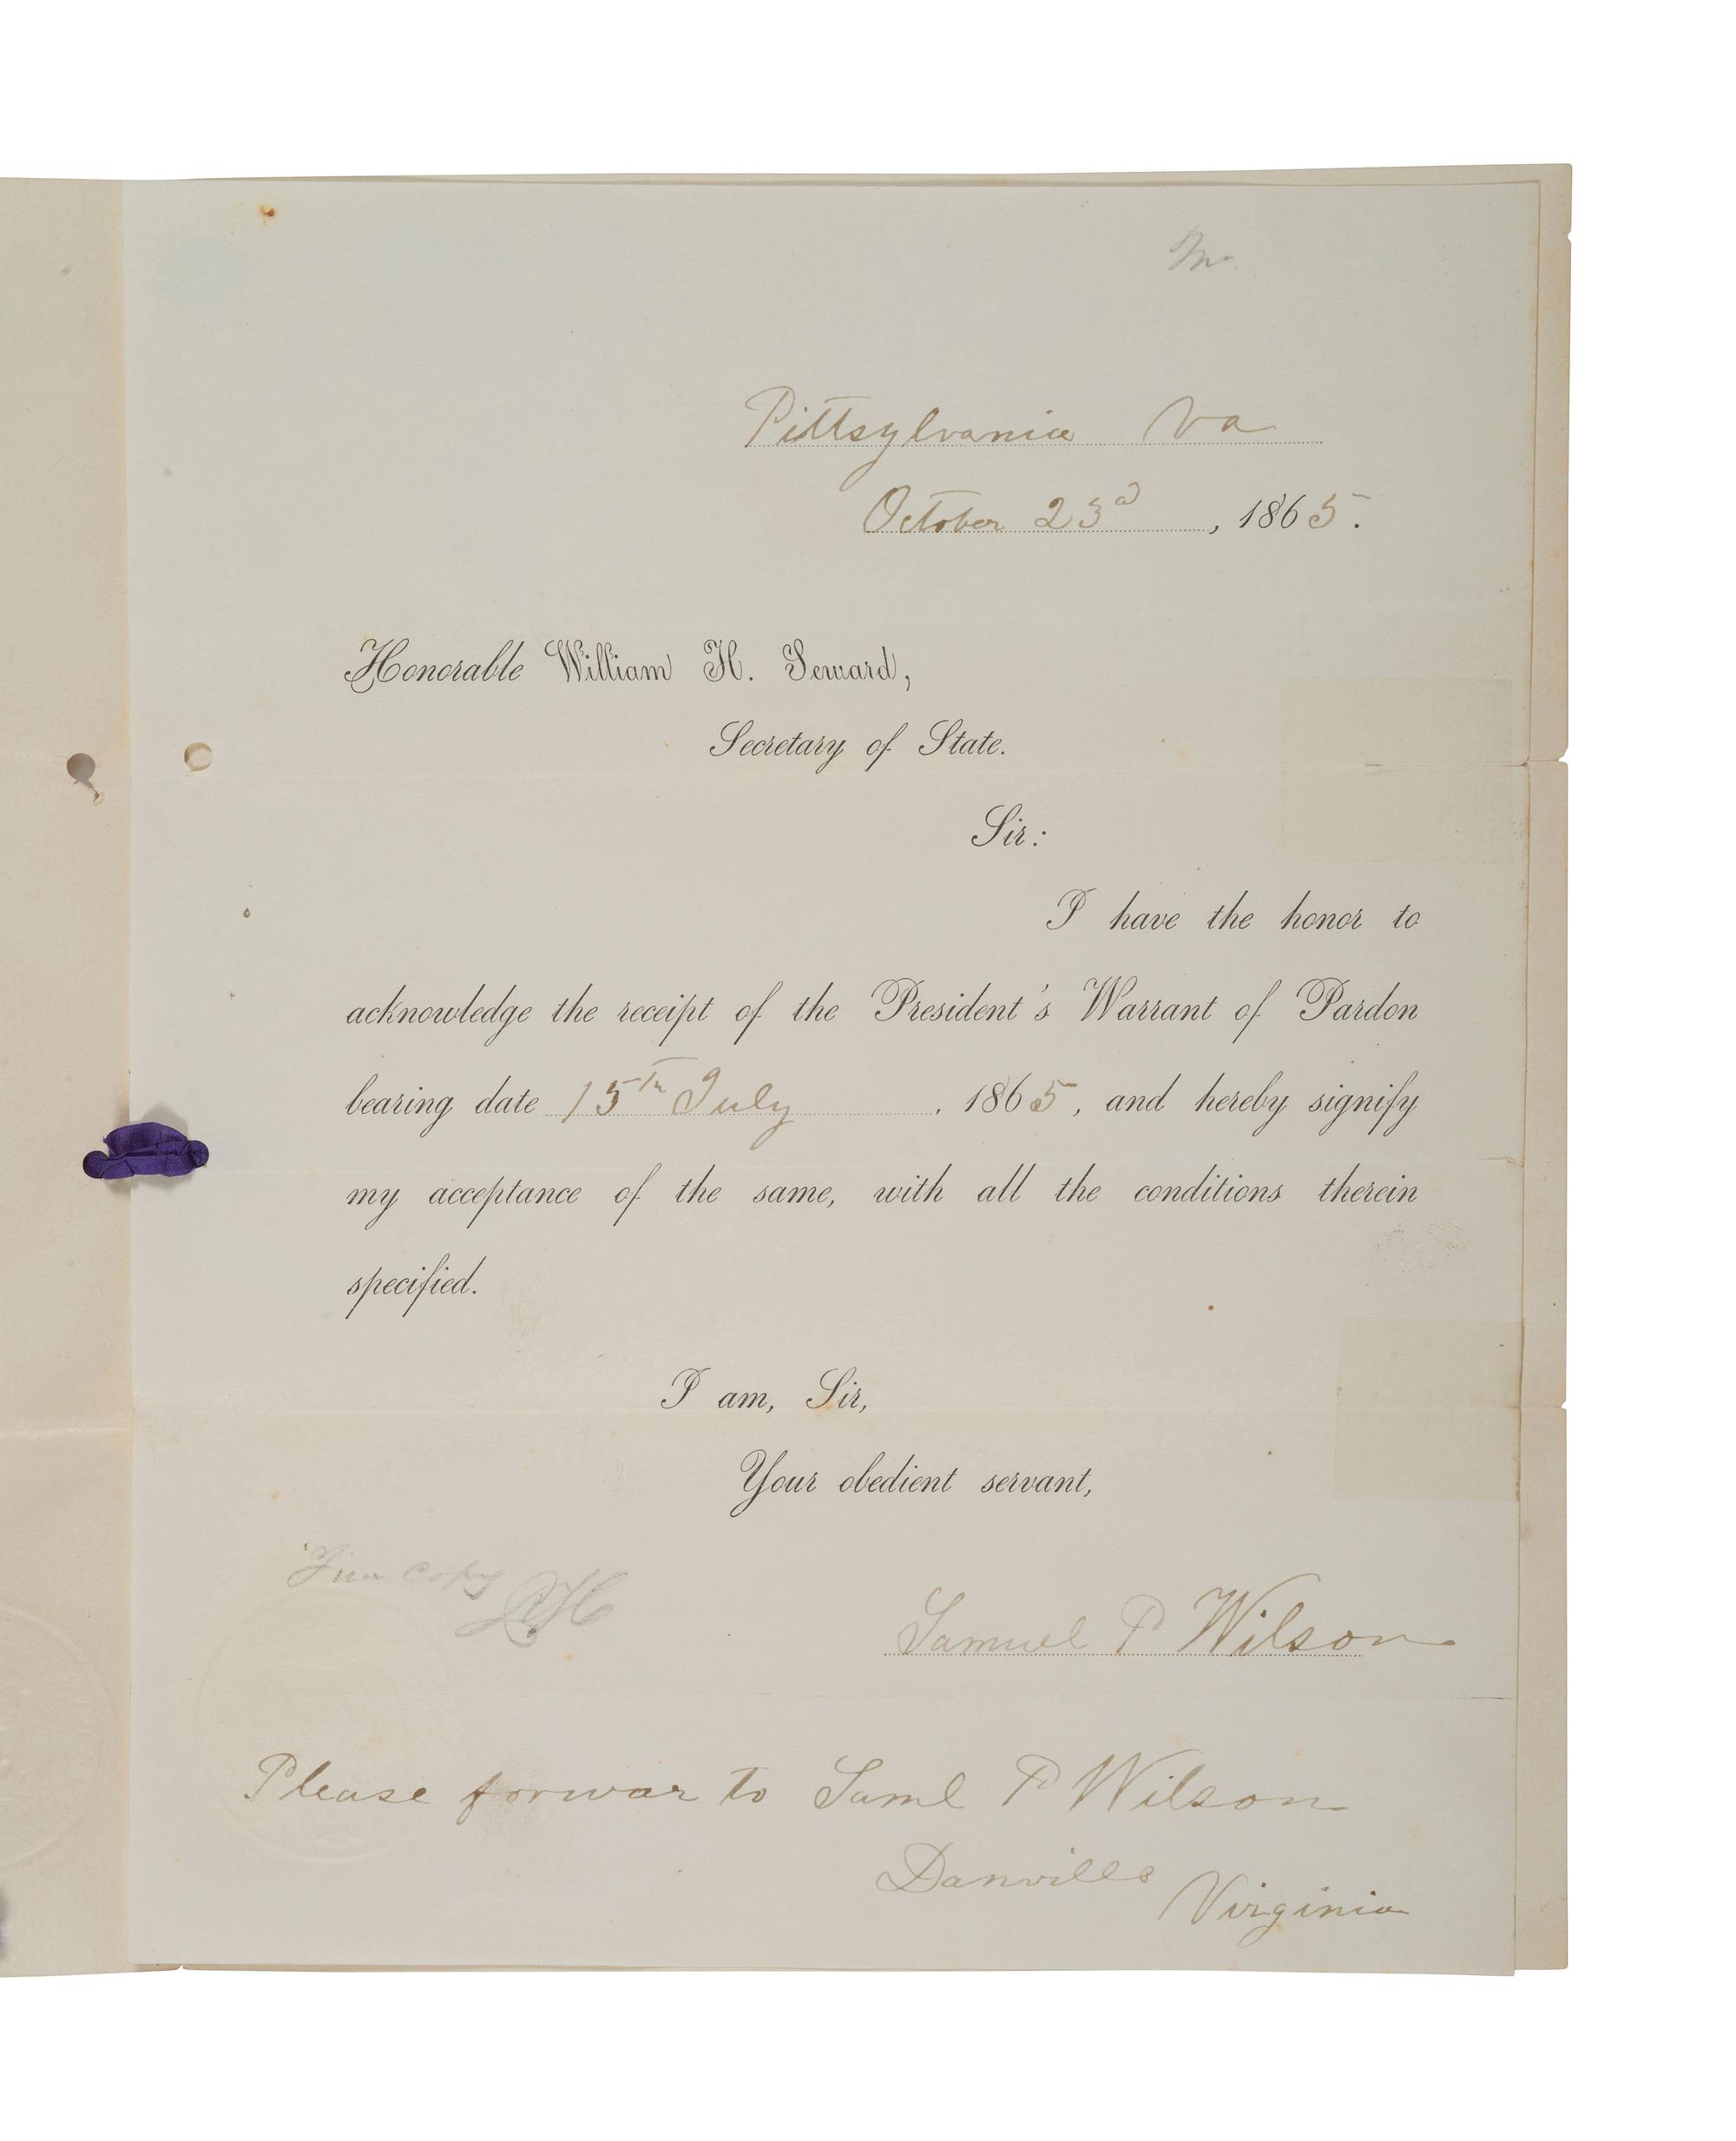 Pittsylvania Va
October 23d, 1865.
Honorable William H. Seward,
Secretary of State.
Sir:
I have the honor to
acknowledge the receipt of the President's Warrant of Pardon
bearing date 15Th July, 1865, and hereby signify
my acceptance of the same, with all the conditions therein
specified.
I am, Sir,
Your obedient servant,
copy
Samuel P Wilson
Please forwar to Saml P Wilson
Danville
Virginia